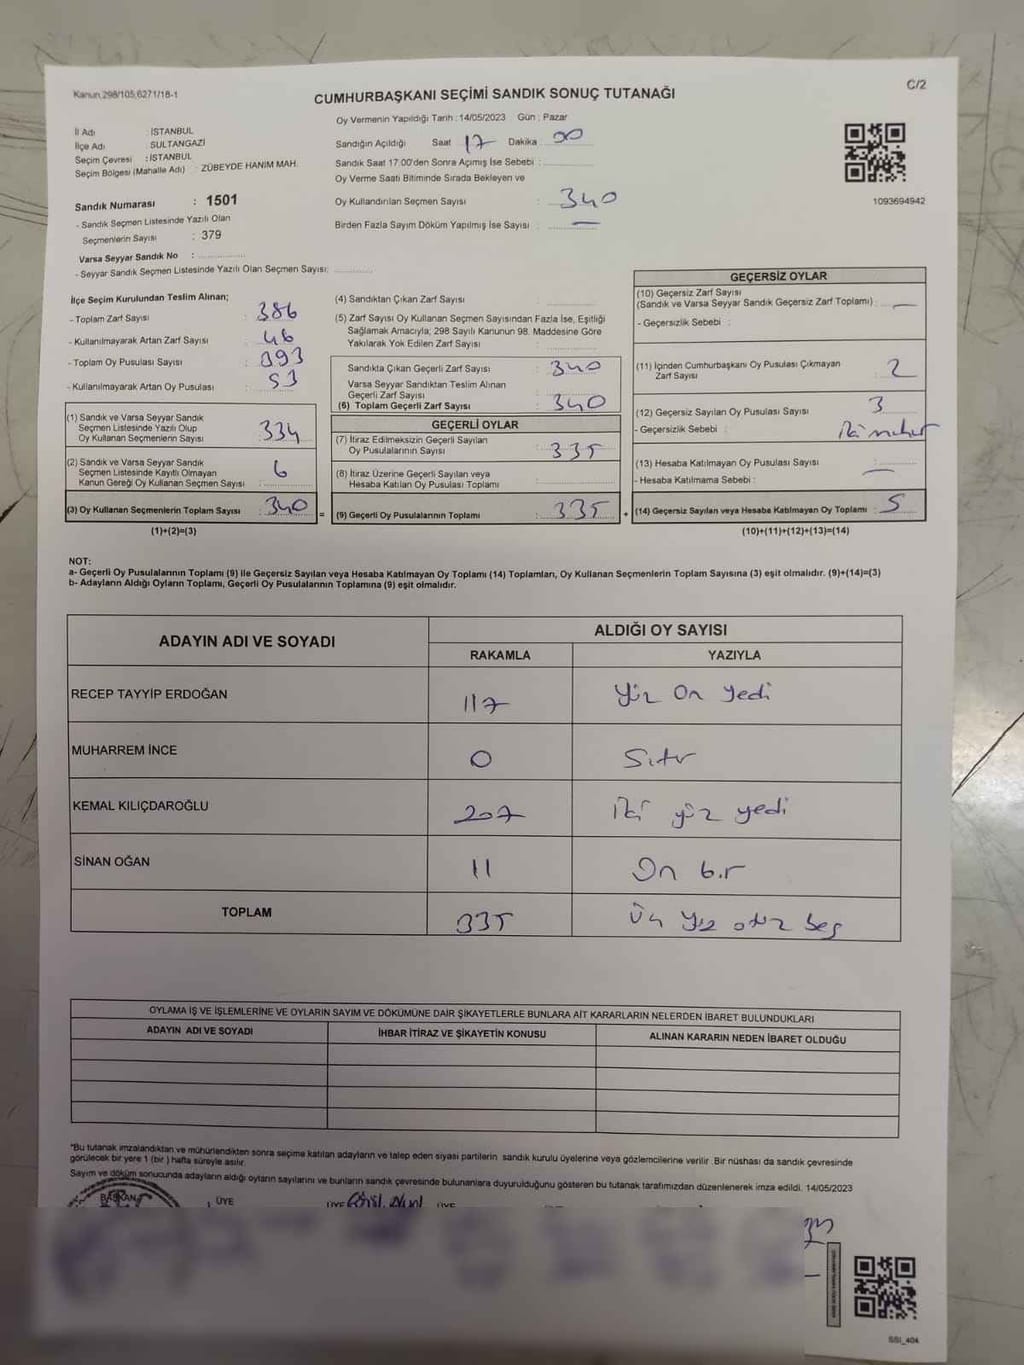 Kanun 298/105,6271/18-1
C/2
CUMHURBAŞKANI SEÇİMİ SANDIK SONUÇ TUTANAĞI
Oy Vermenin Yapıldığı Tarih :14/05/2023 Gün : Pazar
İl Adı : İSTANBUL
İlçe Adı SULTANGAZİ
Seçim Çevresi : İSTANBUL
Seçim Bölgesi (Mahalle Adı) : ZÜBEYDE HANIM MAH.
Sandık Numarası : 1501
- Sandık Seçmen Listesinde Yazılı Olan
Seçmenlerin Sayısı : 379
Varsa Seyyar Sandık No :
- Seyyar Sandık Seçmen Listesinde Yazılı Olan Seçmen Sayısı:
Sandığın Açıldığı Saat 17 Dakika 00
Sandık Saat 17:00'den Sonra Açımış İse Sebebi :
Oy Verme Saati Bitiminde Sırada Bekleyen ve
Oy Kullandırılan Seçmen Sayısı : 340
Birden Fazla Sayım Döküm Yapılmış İse Sayısı : —
1093694942
İlçe Seçim Kurulundan Teslim Alınan;
- Toplam Zarf Sayısı : 386
- Kullanılmayarak Artan Zarf Sayısı : 46
- Toplam Oy Pusulası Sayısı : 393
- Kullanılmayarak Artan Oy Pusulası : 53
(1) Sandık ve Varsa Seyyar Sandık
Seçmen Listesinde Yazılı Olup
Oy Kullanan Seçmenlerin Sayısı : 334
(2) Sandık ve Varsa Seyyar Sandık
Seçmen Listesinde Kayıtlı Olmayan
Kanun Gereği Oy Kullanan Seçmen Sayısı : 6
(3) Oy Kullanan Seçmenlerin Toplam Sayısı : 340
(1)+(2)=(3)
(4) Sandıktan Çıkan Zarf Sayısı :
(5) Zarf Sayısı Oy Kullanan Seçmen Sayısından Fazla İse, Eşitliği
Sağlamak Amacıyla; 298 Sayılı Kanunun 98. Maddesine Göre
Yakılarak Yok Edilen Zarf Sayısı :
Sandıkta Çıkan Geçerli Zarf Sayısı : 340
Varsa Seyyar Sandıktan Teslim Alınan
Geçerli Zarf Sayısı :
(6) Toplam Geçerli Zarf Sayısı : 340
GEÇERLİ OYLAR
(7) İtiraz Edilmeksizin Geçerli Sayılan
Oy Pusulalarının Sayısı : 335
(8) İtiraz Üzerine Geçerli Sayılan veya
Hesaba Katılan Oy Pusulası Toplamı :
= (9) Geçerli Oy Pusulalarının Toplamı : 335 +
GEÇERSİZ OYLAR
(10) Geçersiz Zarf Sayısı
(Sandık ve Varsa Seyyar Sandık Geçersiz Zarf Toplamı) : —
- Geçersizlik Sebebi :
(11) İçinden Cumhurbaşkanı Oy Pusulası Çıkmayan
Zarf Sayısı : 2
(12) Geçersiz Sayılan Oy Pusulası Sayısı : 3
- Geçersizlik Sebebi : iki mühür
(13) Hesaba Katılmayan Oy Pusulası Sayısı : —
- Hesaba Katılmama Sebebi :
(14) Geçersiz Sayılan veya Hesaba Katılmayan Oy Toplamı : 5
(10)+(11)+(12)+(13)=(14)
NOT:
a- Geçerli Oy Pusulalarının Toplamı (9) ile Geçersiz Sayılan veya Hesaba Katılmayan Oy Toplamı (14) Toplamları, Oy Kullanan Seçmenlerin Toplam Sayısına (3) eşit olmalıdır. (9)+(14)=(3)
b- Adayların Aldığı Oyların Toplamı, Geçerli Oy Pusulalarının Toplamına (9) eşit olmalıdır.
ADAYIN ADI VE SOYADI
ALDIĞI OY SAYISI
RAKAMLA YAZIYLA
RECEP TAYYİP ERDOĞAN 117 Yüz On yedi
MUHARREM İNCE 0 Sıfır
KEMAL KILIÇDAROĞLU 207 iki yüz yedi
SİNAN OĞAN 11 On bir
TOPLAM 335 Üç yüz otuz beş
OYLAMA İŞ VE İŞLEMLERİNE VE OYLARIN SAYIM VE DÖKÜMÜNE DAİR ŞİKAYETLERLE BUNLARA AİT KARARLARIN NELERDEN İBARET BULUNDUKLARI
ADAYIN ADI VE SOYADI İHBAR İTİRAZ VE ŞİKAYETİN KONUSU ALINAN KARARIN NEDEN İBARET OLDUĞU
*Bu tutanak imzalandıktan ve mühürlendikten sonra seçime katılan adayların ve talep eden siyasi partilerin sandık kurulu üyelerine veya gözlemcilerine verilir. Bir nüshası da sandık çevresinde
görülecek bir yere 1 (bir) hafta süreyle asılır.
Sayım ve döküm sonucunda adayların aldığı oyların sayılarını ve bunların sandık çevresinde bulunanlara duyurulduğunu gösteren bu tutanak tarafımızdan düzenlenerek imza edildi. 14/05/2023
BAŞKAN ÜYE ÜYE ÜYE
SSI_404